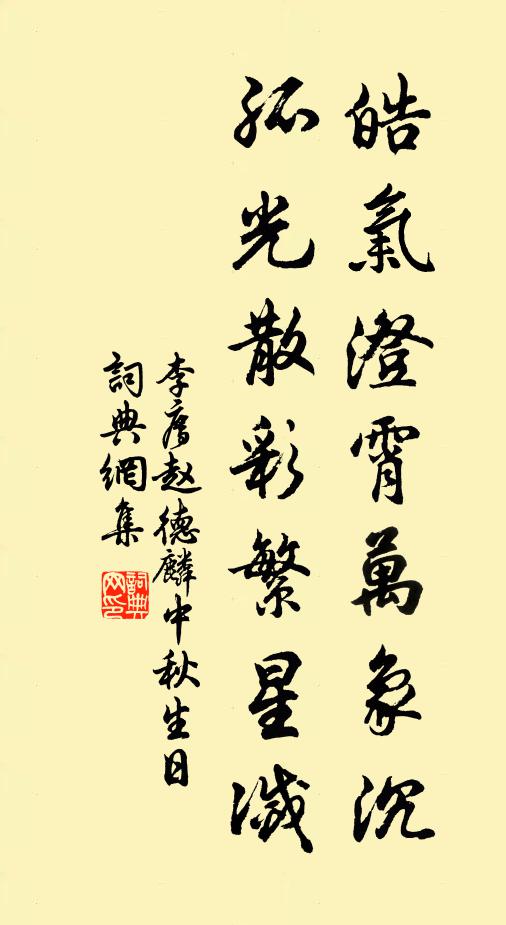 皓氣澄霄萬象沉
孤光散彩繁星滅
李廌趙德麟中秋生日
詞典網集
詞典网印